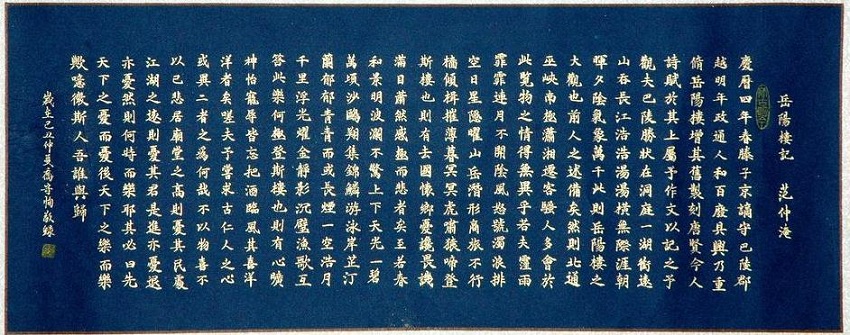 岳陽樓記 范仲淹
慶曆四年春滕子京謫守巴陵郡
越明年政通人和百廢具興乃重
脩岳陽樓增其舊製刻唐賢今人
詩賦於其上屬予作文以記之予
觀夫巴陵勝狀在洞庭一湖銜遠
山吞長江浩浩湯湯橫無際涯朝
暉夕陰氣象萬千此則岳陽樓之
大觀也前人之述備矣然則北通
巫峽南極瀟湘遷客騷人多會於
此覽物之情得無異乎若夫霪雨
霏霏連月不開陰風怒號濁浪排
空日星隱曜山岳潛形商旅不行
檣傾楫摧薄暮冥冥虎嘯猿啼登
斯樓也則有去國懷鄉憂讒畏譏
滿目蕭然感極而悲者矣至若春
和景明波瀾不驚上下天光一碧
萬頃沙鷗翔集錦鱗游泳岸芷汀
蘭郁郁青青而或長煙一空浩月
千里浮光耀金靜影沉璧漁歌互
答此樂何極登斯樓也則有心曠
神怡寵辱皆忘把酒臨風其喜洋
洋者矣嗟夫予嘗求古仁人之心
或異二者之為何哉不以物喜不
以己悲居廟堂之高則憂其民處
江湖之遠則憂其君是進亦憂退
亦憂然則何時而樂耶其必曰先
天下之憂而憂後天下之樂而樂
歟噫微斯人吾誰與歸
歲在己巳仲夏喬守恂敬錄